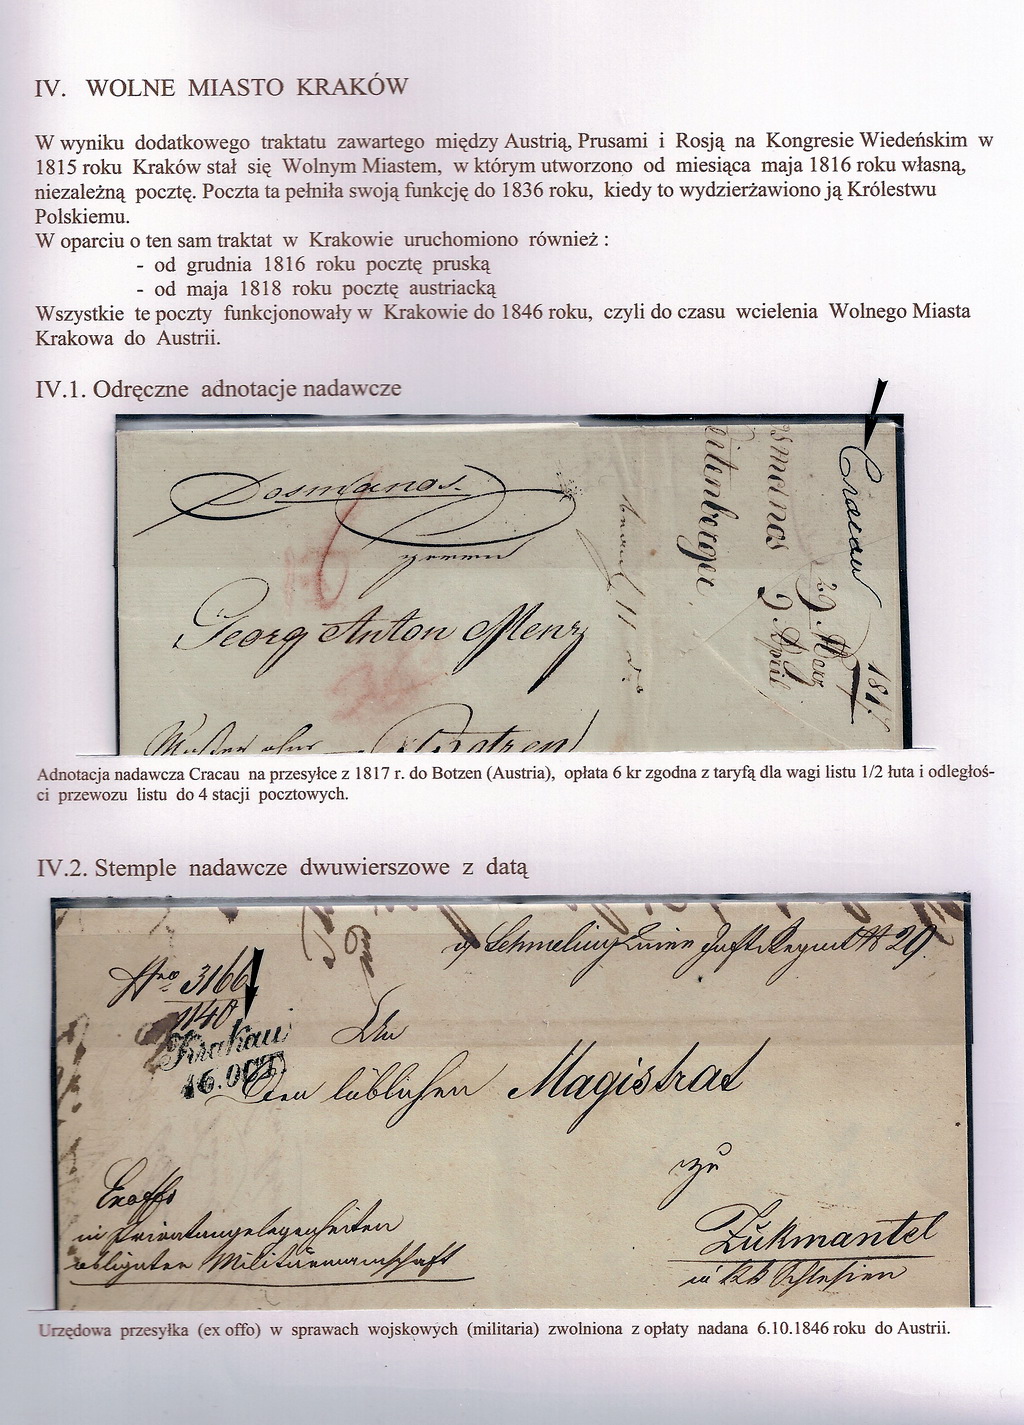 IV. WOLNE MIASTO KRAKÓW
W wyniku dodatkowego traktatu zawartego między Austrią, Prusami i Rosją na Kongresie Wiedeńskim w
1815 roku Kraków stał się Wolnym Miastem, w którym utworzono od miesiąca maja 1816 roku własną,
niezależną pocztę. Poczta ta pełniła swoją funkcję do 1836 roku, kiedy to wydzierżawiono ją Królestwu
Polskiemu.
W oparciu o ten sam traktat w Krakowie uruchomiono również :
- od grudnia 1816 roku pocztę pruską
- od maja 1818 roku pocztę austriacką
Wszystkie te poczty funkcjonowały w Krakowie do 1846 roku, czyli do czasu wcielenia Wolnego Miasta
Krakowa do Austrii.
IV.1. Odręczne adnotacje nadawcze
Cracau 1817
29 Marz
9 April
Herrn
Georg Anton Menz
Botzen
Adnotacja nadawcza Cracau na przesyłce z 1817 r. do Botzen (Austria), opłata 6 kr zgodna z taryfą dla wagi listu 1/2 łuta i odległoś-
ci przewozu listu do 4 stacji pocztowych.
IV.2. Stemple nadawcze dwuwierszowe z datą
Nro 3166
1140
Krakau
16. OCT
An
Den löblichen Magistrat
zu
Zukmantel
in kk Schlesien
Exoffo
in Privatangelegenheiten
obligater Militärmannschaft
Urzędowa przesyłka (ex offo) w sprawach wojskowych (militaria) zwolniona z opłaty nadana 6.10.1846 roku do Austrii.